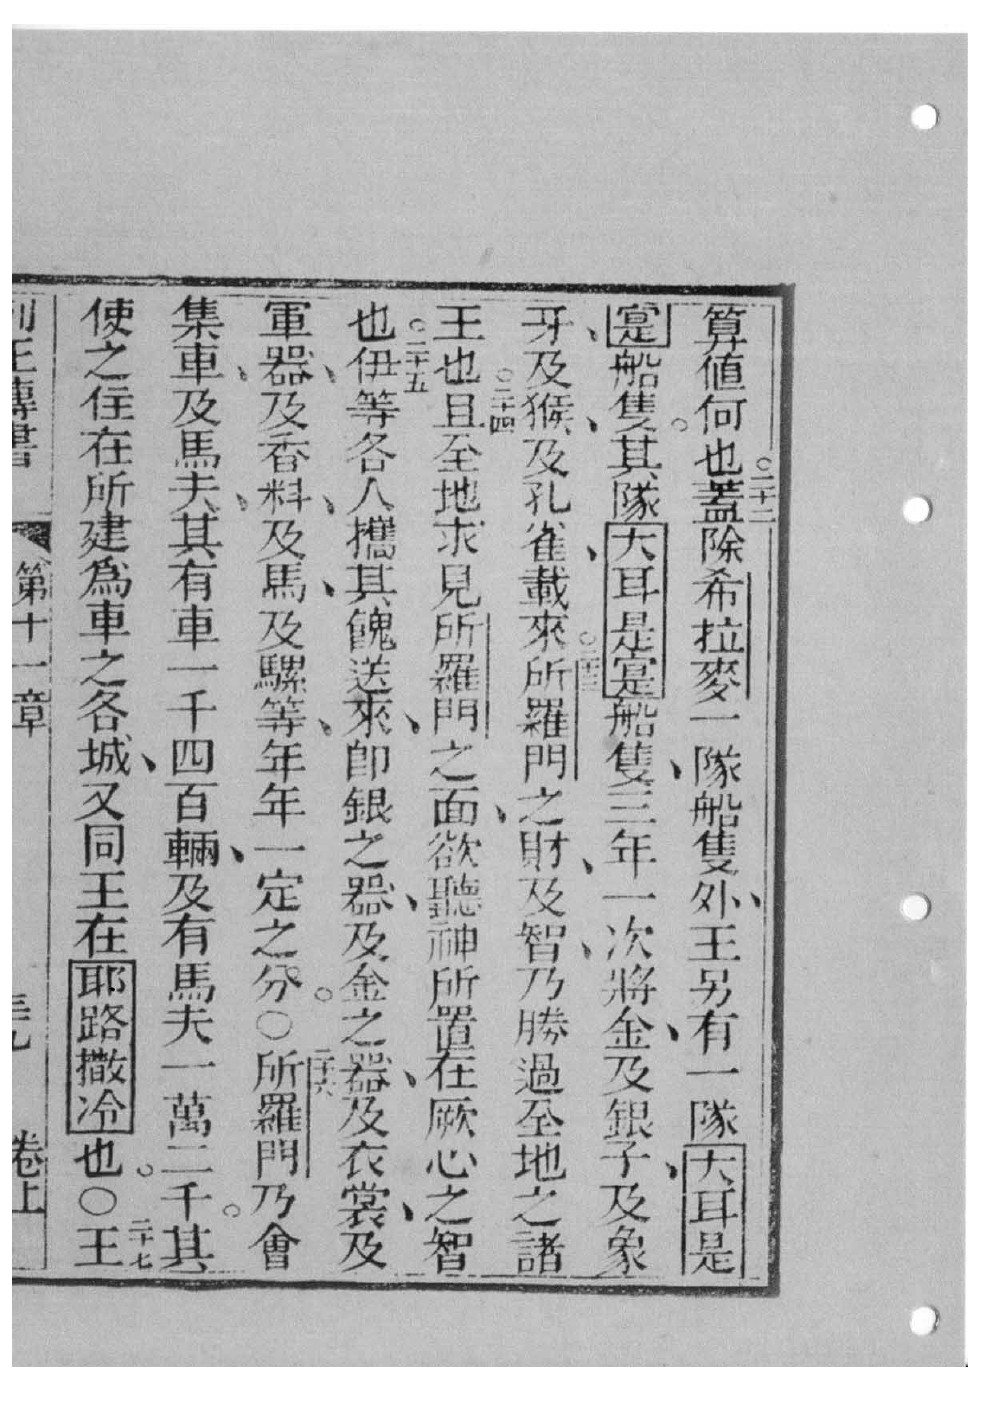 算值何也○二十二蓋除希拉麥一隊船隻外、王另有一隊大耳是
寔船隻。其隊大耳是寔船隻、三年一次將金、及銀子、及象
牙、及猴、及孔雀、載來○二十三所羅門之財、及智、乃勝過至地之諸
王也○二十四且至地求見所羅門之面、欲聽神所置在厥心之智
也○二十五伊等各人攜其餽送來、卽銀之器、及金之器、及衣裳、及
軍器、及香料、及馬、及騾等、年年一定之分。○二十六所羅門乃會
集車、及馬夫、其有車一千四百輛、及有馬夫一萬二千。其
使之住在所建爲車之各城、又同王在耶路撒冷也。○二十七王
列王傳書 第十一章 卷上